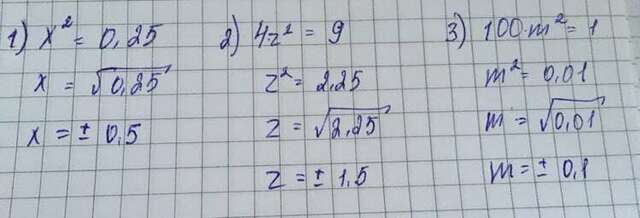 1) x² = 0,25
x = √0,25
x = ± 0,5
2) 4z² = 9
z² = 2,25
z = √2,25
z = ± 1,5
3) 100·m² = 1
m² = 0,01
m = √0,01
m = ± 0,1